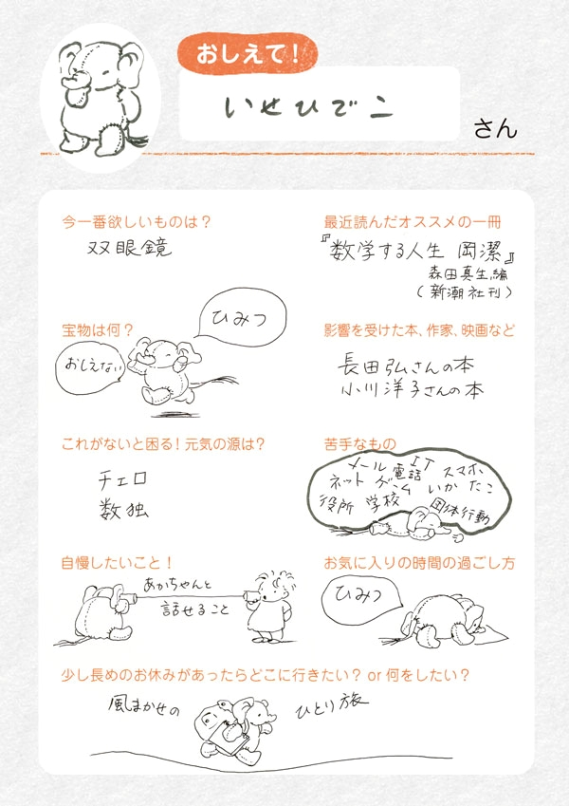 おしえて!
いせひでこ
さん
今一番欲しいものは?
双眼鏡
最近読んだオススメの一冊
『数学する人生 岡潔』
森田真生編
(新潮社刊)
宝物は何?
ひみつ
おしえない
影響を受けた本、作家、映画など
長田弘さんの本
小川洋子さんの本
これがないと困る!元気の源は?
チェロ
数独
苦手なもの
メール 電話 IT スマホ
ネット ゲーム いか たこ
役所 学校 団体行動
自慢したいこと!
あかちゃんと
話せること
お気に入りの時間の過ごし方
ひみつ
少し長めのお休みがあったらどこに行きたい? or 何をしたい?
風まかせの ひとり旅